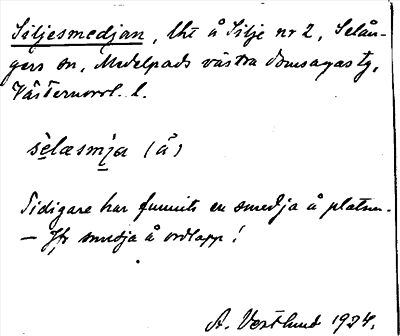 Siljesmedjan, lht å Silje nr 2, Selån-
gers sn, Medelpads västra domsagas tg,
Västernorrl. l.
sèlæsmja (å)
Tidigare har funnits en smedja å platsen.
— Jfr smedja å ordlapp!
A. Vestlund 1924.